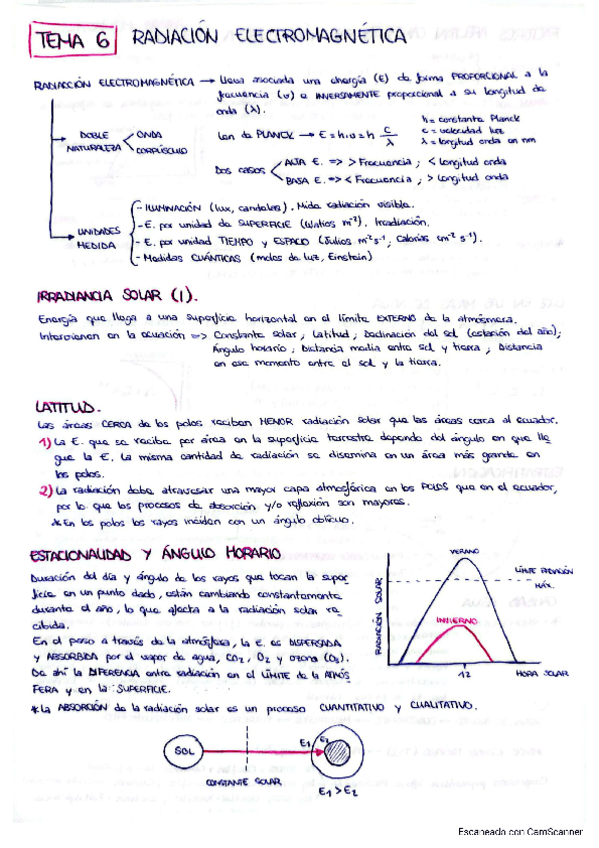 TEMA 6 RADIACIÓN ELECTROMAGNÉTICA
RADIACIÓN ELECTROMAGNÉTICA → lleva asociada una energía (E) de forma PROPORCIONAL a la
frecuencia (ν) e INVERSAMENTE proporcional a su longitud de
onda (λ).
DOBLE NATURALEZA < ONDA
CORPÚSCULO
Ley de PLANCK → E = h·ν = h c/λ
h = constante Planck
c = velocidad luz
λ = longitud onda en nm
Dos casos < ALTA E. => > Frecuencia ; < Longitud onda
BAJA E. => < Frecuencia ; > Longitud onda
UNIDADES MEDIDA
- ILUMINACIÓN (lux, candelas). Mide radiación visible.
- E. por unidad de SUPERFICIE (Watios m⁻²). Irradiación.
- E. por unidad TIEMPO y ESPACIO (Julios m⁻² s⁻¹, Calorías cm⁻² s⁻¹).
- Medidas CUÁNTICAS (moles de luz, Einstein)
IRRADIANCIA SOLAR (I).
Energía que llega a una superficie horizontal en el límite EXTERNO de la atmósfera.
Intervienen en la ecuación => Constante solar, Latitud, Declinación del sol (estación del año);
Ángulo horario, Distancia media entre sol y tierra, Distancia
en ese momento entre el sol y la tierra.
LATITUD.
Las áreas CERCA de los polos reciben MENOR radiación solar que las áreas cerca al ecuador.
1) La E. que se recibe por área en la superficie terrestre depende del ángulo en que lle
gue la E. La misma cantidad de radiación se disemina en un área más grande en
los polos.
2) La radiación debe atravesar una mayor capa atmosférica en los POLOS que en el ecuador,
por lo que los procesos de absorción y/o reflexión son mayores.
* En los polos los rayos inciden con un ángulo oblicuo.
ESTACIONALIDAD Y ÁNGULO HORARIO
Duración del día y ángulo de los rayos que tocan la super
ficie en un punto dado, están cambiando constantemente
durante el año, lo que afecta a la radiación solar re
cibida.
En el paso a través de la atmósfera, la E. es DISPERSADA
y ABSORBIDA por el vapor de agua, CO₂, O₂ y ozono (O₃).
De ahí la DIFERENCIA entre radiación en el LÍMITE de la ATMÓS
FERA y en la SUPERFICIE.
* La ABSORCIÓN de la radiación solar es un proceso CUANTITATIVO y CUALITATIVO.
VERANO
LÍMITE RADIACIÓN
MÁX.
INVIERNO
RADIACIÓN SOLAR
12
HORA SOLAR
SOL
E₁
E₂
CONSTANTE SOLAR
E₁ > E₂
Escaneado con CamScanner